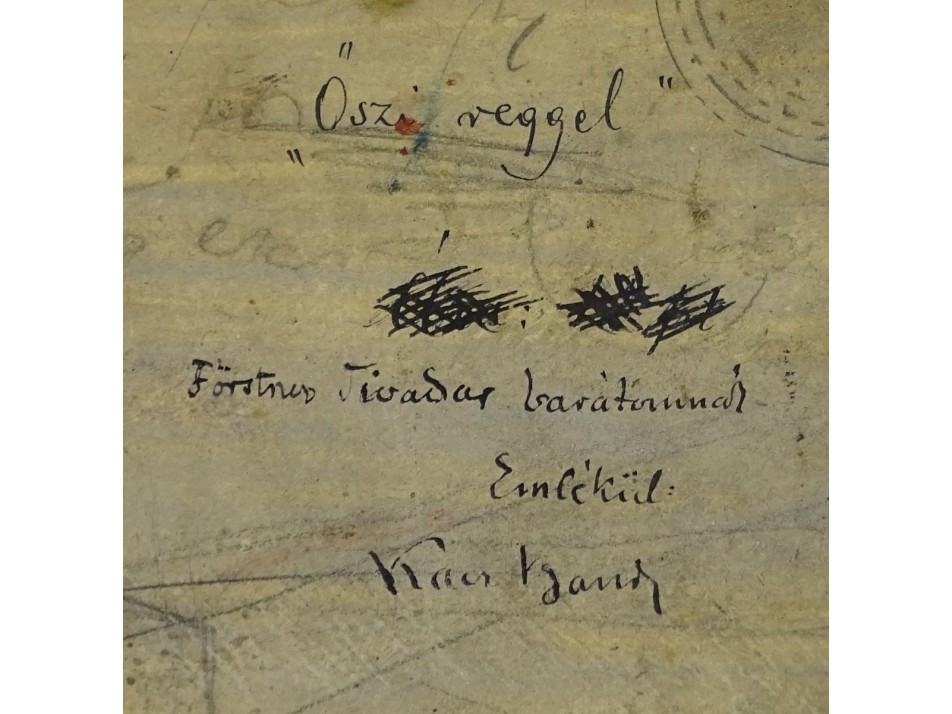 "Őszi reggel"
Förstner Tivadar barátomnak
Emlékül:
Bandi